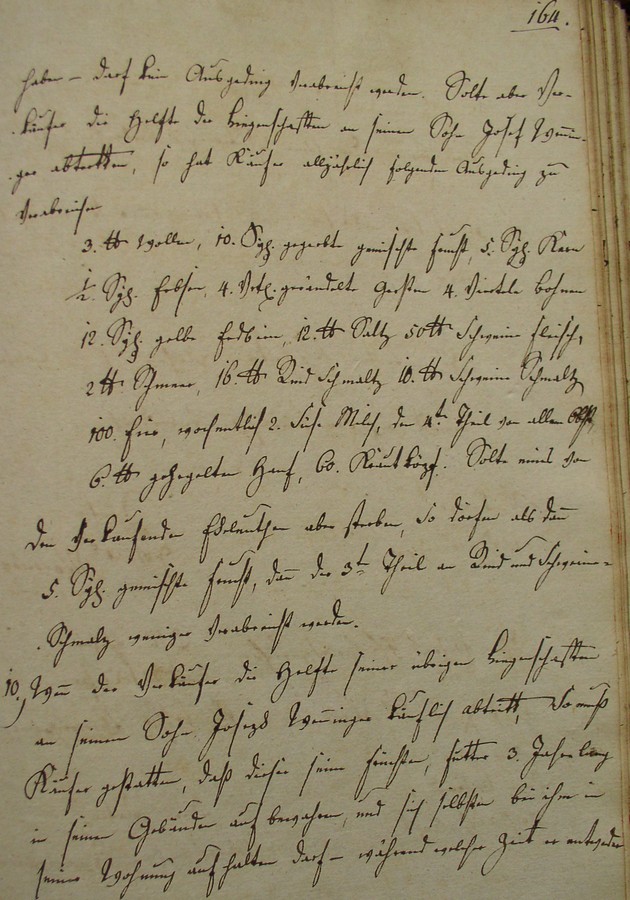 164.
haben – darf kein Ausgeding verabreicht werden. Solte aber Ver-
käufer die Helfte der Liegenschaften an seinen Sohn Josef Wenin-
ger abtretten, so hat Käufer alljährlich folgenden Ausgeding zu
verabreichen
3. ℔ Wollen, 10. Schl. gegerbte gemischte Frucht, 5. Schl. Kern
1/2 Schl. Erbsen, 4. Vrtl. gerändelte Gersten 4. Viertele Bohnen
12. Schl. gelbe Erdbirn, 12. ℔ Saltz 50 ℔ Schweine Fleisch,
2 ℔ Schmeer, 16. ℔ Rind Schmaltz 10. ℔ Schweine Schmaltz
100. Eier, wochentlich 2. Süse Milch, den 4t Theil von allem Obst,
6. ℔ gehegelten Hanf, 60. Krautköpf. Solte eines von
den verkaufenden Eheleuthen aber sterben, so dörfen als dann
5. Schl. gemischte Frucht, dann der 3t Theil an Rind und Schweine-
Schmaltz weniger verabreicht werden.
10.) Wenn der Verkäufer die Helfte seiner übrigen Liegenschaften
an seinen Sohn Joseph Weninger käuflich abtritt, so muß
Käufer gestatten, daß dieser seine Früchten, Futter 3. Jahre lang
in seinen Gebäuden aufbewahren, und sich selbsten bei ihm in
seiner Wohnung aufhalten darf – während welcher Zeit er entweder